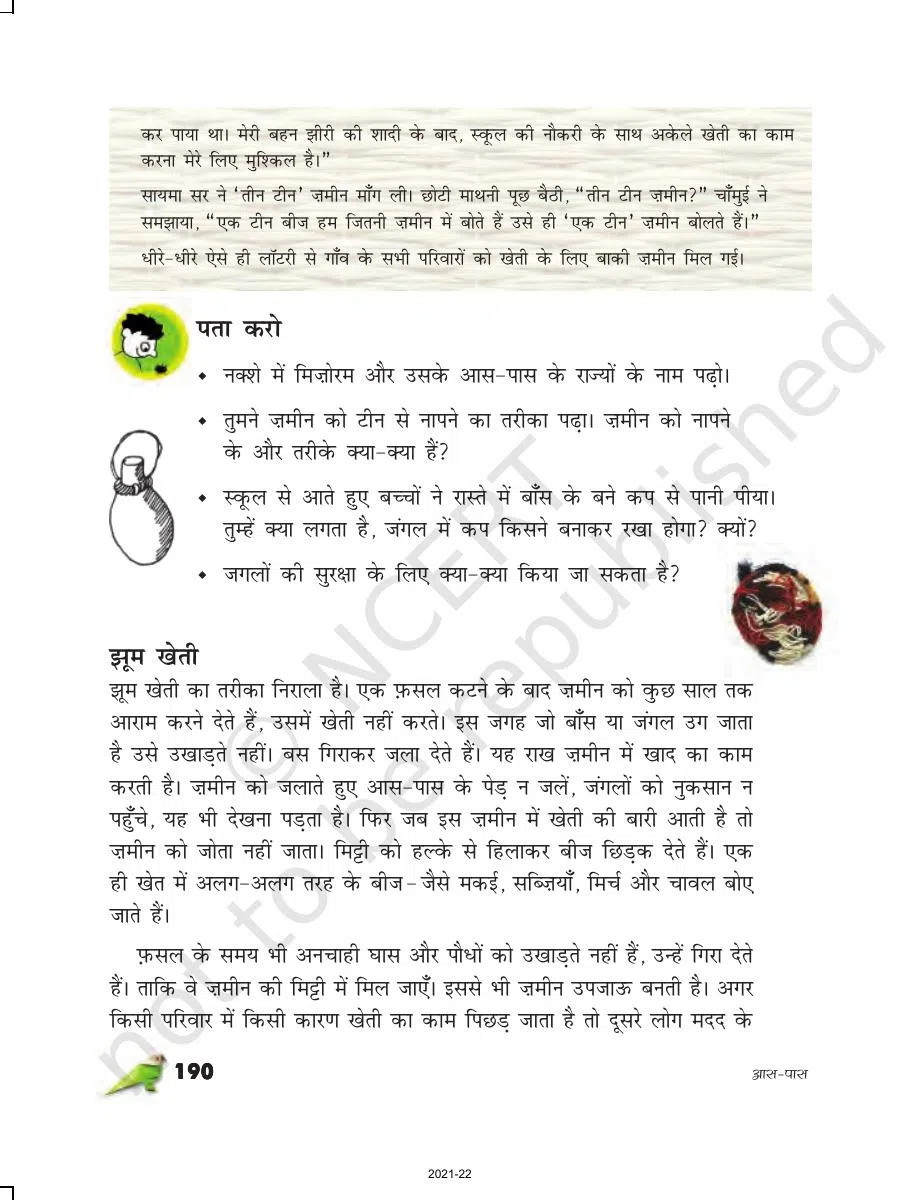 कर पाया था। मेरी बहन झीरी की शादी के बाद, स्कूल की नौकरी के साथ अकेले खेती का काम
करना मेरे लिए मुश्किल है।”
सायमा सर ने ‘तीन टीन’ ज़मीन माँग ली। छोटी माथनी पूछ बैठी, “तीन टीन ज़मीन?” चाँमुई ने
समझाया, “एक टीन बीज हम जितनी ज़मीन में बोते हैं उसे ही ‘एक टीन’ ज़मीन बोलते हैं।”
धीरे-धीरे ऐसे ही लॉटरी से गाँव के सभी परिवारों को खेती के लिए बाकी ज़मीन मिल गई।
पता करो
• नक्शे में मिज़ोरम और उसके आस-पास के राज्यों के नाम पढ़ो।
• तुमने ज़मीन को टीन से नापने का तरीका पढ़ा। ज़मीन को नापने
के और तरीके क्या-क्या हैं?
• स्कूल से आते हुए बच्चों ने रास्ते में बाँस के बने कप से पानी पीया।
तुम्हें क्या लगता है, जंगल में कप किसने बनाकर रखा होगा? क्यों?
• जगलों की सुरक्षा के लिए क्या-क्या किया जा सकता है?
झूम खेती
झूम खेती का तरीका निराला है। एक फ़सल कटने के बाद ज़मीन को कुछ साल तक
आराम करने देते हैं, उसमें खेती नहीं करते। इस जगह जो बाँस या जंगल उग जाता
है उसे उखाड़ते नहीं। बस गिराकर जला देते हैं। यह राख ज़मीन में खाद का काम
करती है। ज़मीन को जलाते हुए आस-पास के पेड़ न जलें, जंगलों को नुकसान न
पहुँचे, यह भी देखना पड़ता है। फिर जब इस ज़मीन में खेती की बारी आती है तो
ज़मीन को जोता नहीं जाता। मिट्टी को हल्के से हिलाकर बीज छिड़क देते हैं। एक
ही खेत में अलग-अलग तरह के बीज-जैसे मकई, सब्ज़ियाँ, मिर्च और चावल बोए
जाते हैं।
फ़सल के समय भी अनचाही घास और पौधों को उखाड़ते नहीं हैं, उन्हें गिरा देते
हैं। ताकि वे ज़मीन की मिट्टी में मिल जाएँ। इससे भी ज़मीन उपजाऊ बनती है। अगर
किसी परिवार में किसी कारण खेती का काम पिछड़ जाता है तो दूसरे लोग मदद के
190
आस-पास
2021-22
© NCERT
not to be republished